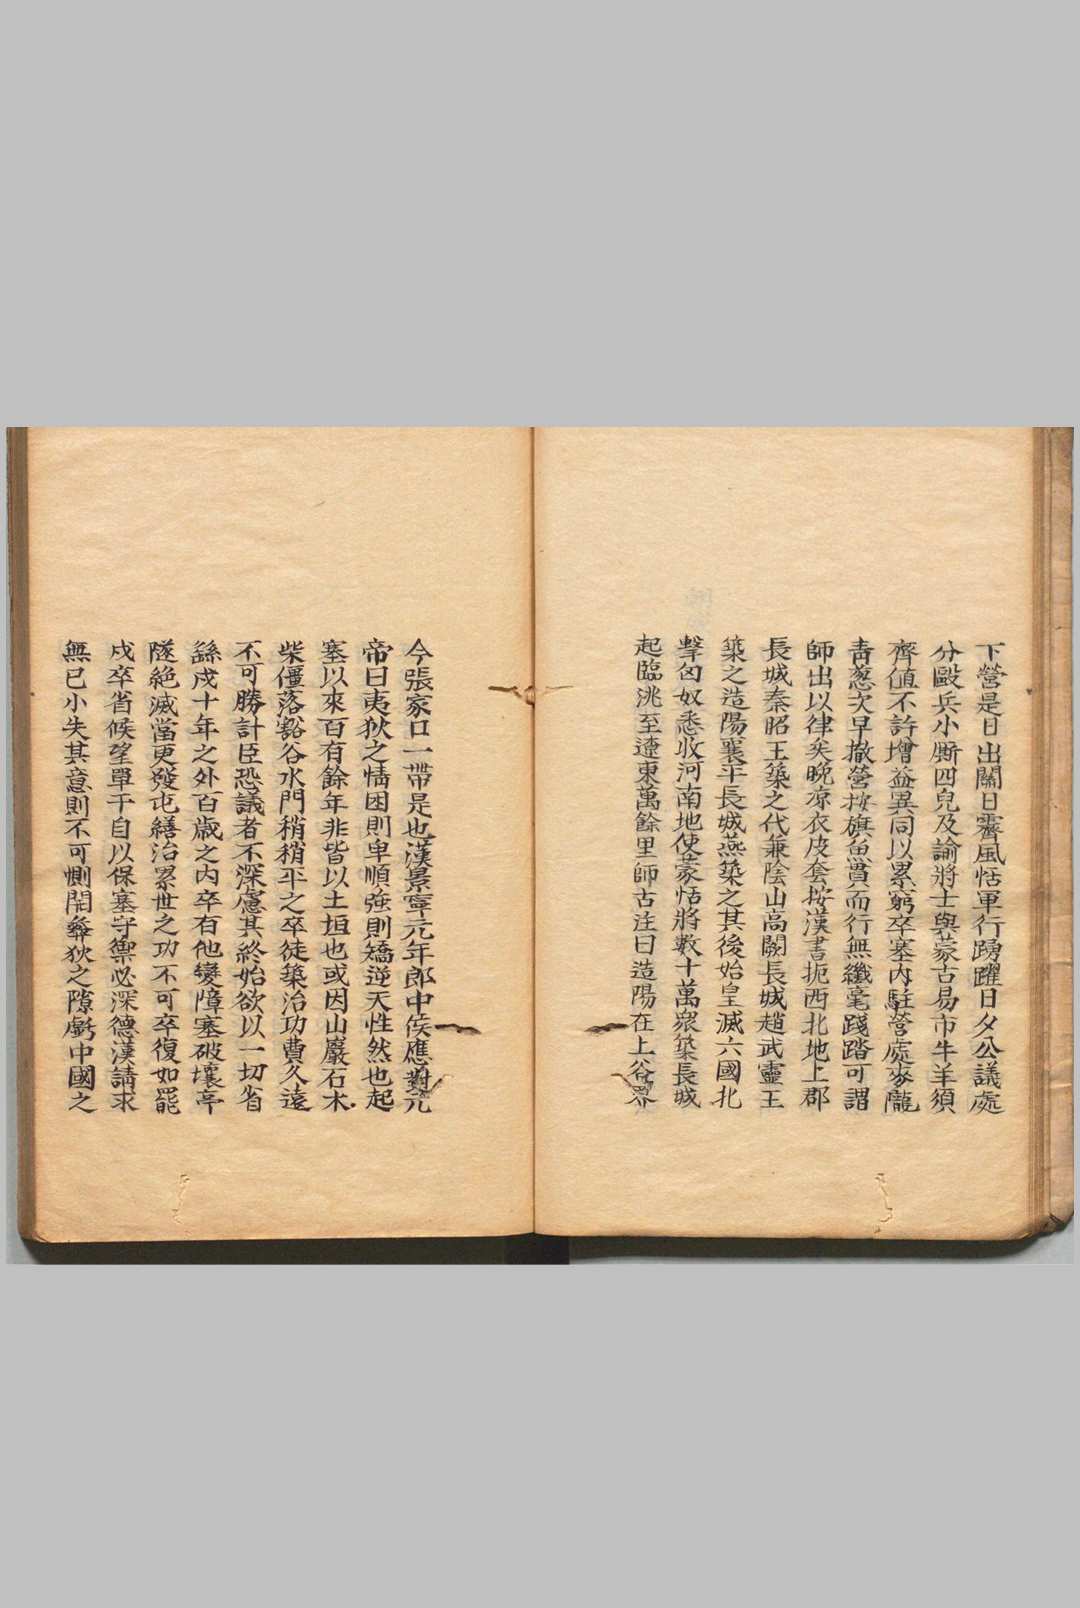 下營是日出關日霽風恬軍行踴躍日夕公議處
分毆兵小廝四兒及諭將士與蒙古易市牛羊須
齊值不許增益異同以累窮卒塞内駐營處麥隴
青葱次早撤營按旗魚貫而行無纖毫踐踏可謂
師出以律矣晚凉衣皮套按漢書扼西北地上郡
長城秦昭王築之代兼陰山高闕長城趙武靈王
築之造陽襄平長城燕築之其後始皇滅六國北
擊匈奴悉收河南地使蒙恬將數十萬衆築長城
起臨洮至遼東萬餘里師古注曰造陽在上谷界
今張家口一帶是也漢景寧元年郎中侯應對元
帝曰夷狄之情困則卑順強則矯逆天性然也起
塞以來百有餘年非皆以土垣也或因山巖石木
柴僵落谿谷水門稍稍平之卒徒築治功費久遠
不可勝計臣恐議者不深慮其終始欲以一切省
繇戍十年之外百歲之内卒有他變障塞破壞亭
隧絶滅當更發屯繕治累世之功不可卒復如罷
戍卒省候望單于自以保塞守禦必深德漢請求
無已小失其意則不可惻開彝狄之隙虧中國之